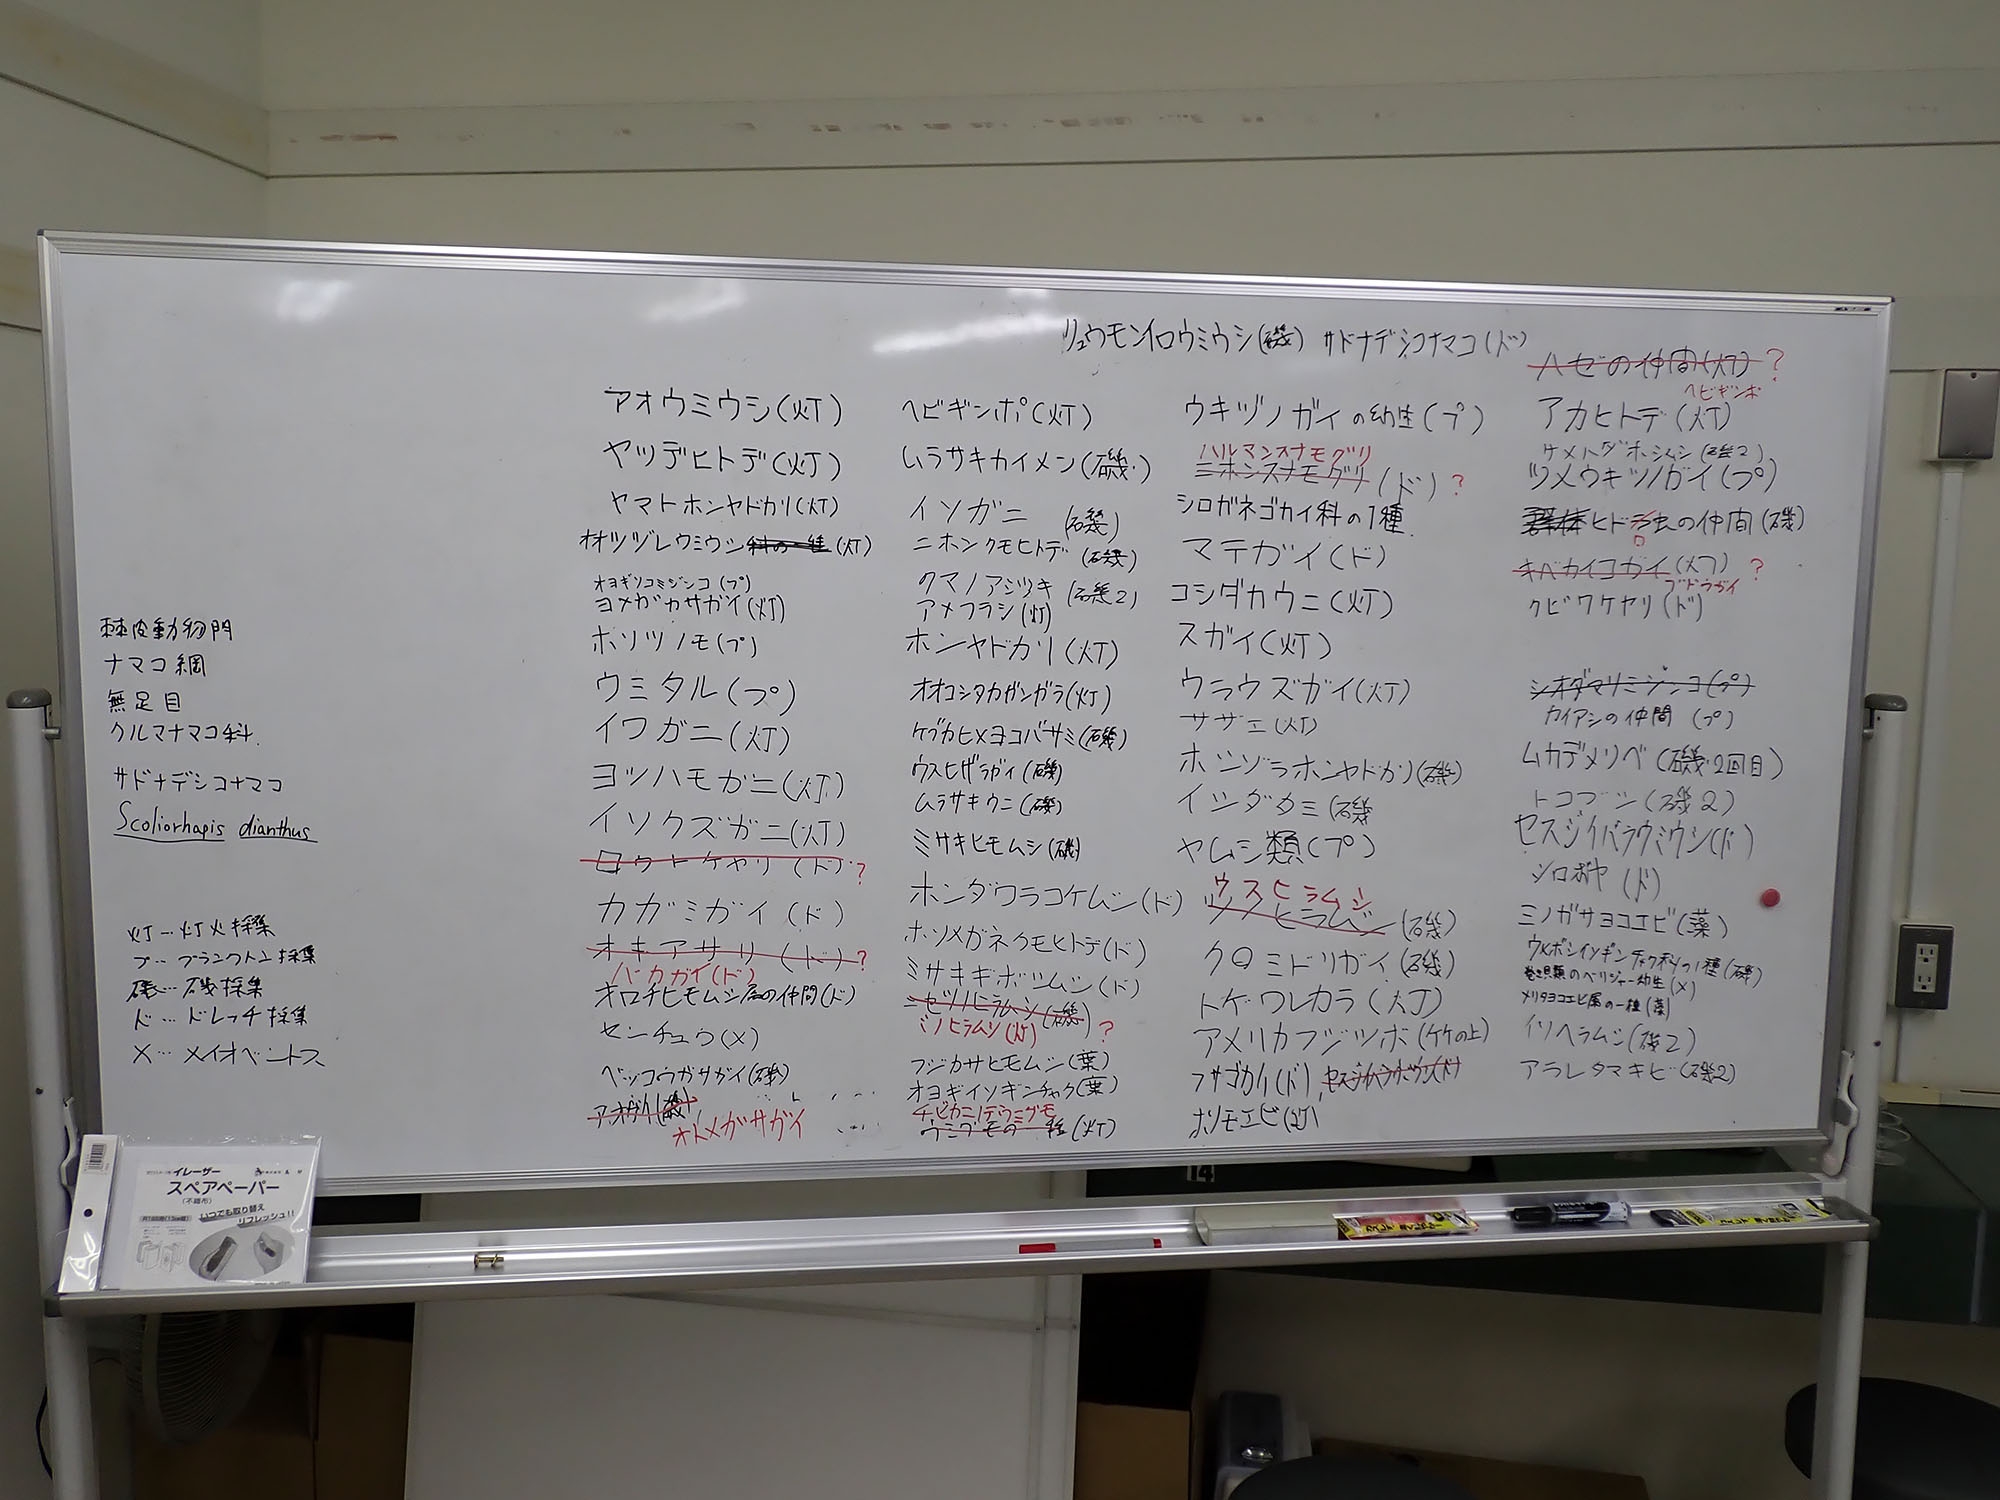 リュウモンイロウミウシ(磯) サドナデシコナマコ(ド)
棘皮動物門
ナマコ綱
無足目
クルマナマコ科
サドナデシコナマコ
Scoliorhapis dianthus
灯…灯火採集
プ…プランクトン採集
磯…磯採集
ド…ドレッチ採集
メ…メイオベントス
アオウミウシ(灯)
ヤツデヒトデ(灯)
ヤマトホンヤドカリ(灯)
オオツヅレウミウシ科の一種(灯)
オヨギソコミジンコ(プ)
ヨメガカサガイ(灯)
ホソツノモ(プ)
ウミタル(プ)
イワガニ(灯)
ヨツハモガニ(灯)
イソクズガニ(灯)
ロウトケヤリ(ド)?
カガミガイ(ド)
オキアサリ(ド)?
バカガイ(ド)
オロチヒモムシ属の仲間(ド)
センチュウ(メ)
ベッコウガサガイ(磯)
アオガイ(磯)
オトメガサガイ
ヘビギンポ(灯)
ムラサキカイメン(磯)
イソガニ(磯)
ニホンクモヒトデ(磯)
クマノアシツキ(磯2)
アメフラシ(灯)
ホンヤドカリ(灯)
オオコシタカガンガラ(灯)
ケブカヒメヨコバサミ(磯)
ウスヒザラガイ(磯)
ムラサキウニ(磯)
ミサキヒモムシ(磯)
ホンダワラコケムシ(ド)
ホソメガネクモヒトデ(ド)
ミサキギボシムシ(ド)
ニセツノヒラムシ(磯)
ミノヒラムシ(灯)?
フジカサヒモムシ(葉)
オヨギイソギンチャク(葉)
チビカニノテウミグモ
ウミグモの一種(灯)
ウキヅノガイの幼生(プ)
ハルマンスナモグリ
ニホンスナモグリ(ド)?
シロガネゴカイ科の1種
マテガイ(ド)
コシダカウニ(灯)
スガイ(灯)
ウラウズガイ(灯)
サザエ(灯)
ホシゾラホンヤドカリ(磯)
イシダタミ(磯
ヤムシ類(プ)
ウスヒラムシ
ツノヒラムシ(磯)
クロミドリガイ(磯)
トゲワレカラ(灯)
アメリカフジツボ(ケケの上)
フサゴカイ(ド),
ホソモエビ(灯)
ハゼの仲間(灯)?
ヘビギンポ
アカヒトデ(灯)
サメハダホシムシ(磯2)
ツメウキヅノガイ(プ)
群体ヒドラ虫の仲間(磯)
ロ
キベカイコガイ(灯)?
ブドウガイ
クビワケヤリ(ド)
シオダマリミジンコ(プ)
カイアシの仲間(プ)
ムカデメリベ(磯・2回目)
トコブシ(磯2)
セスジイバラウミウシ(ド)
シロボヤ(ド)
ミノガサヨコエビ(藻)
ウメボシイソギンチャク科の1種(磯)
巻き貝類のベリジャー幼生(メ)
メリタヨコエビ属の一種(藻)
イソヘラムシ(磯2)
アラレタマキビ(磯2)
イレーザー
スペアペーパー
(不織布)
いつでも取り替え
リフレッシュ!!
14